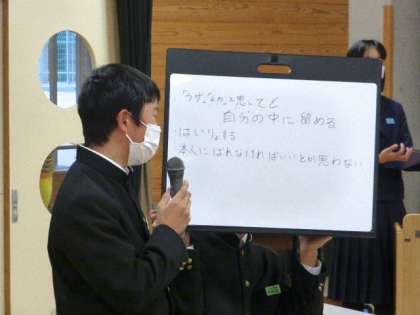 「うザ」「なか」と思っても
自分の中に留める
・はいりょする
本人にばれなければいいとか思わない